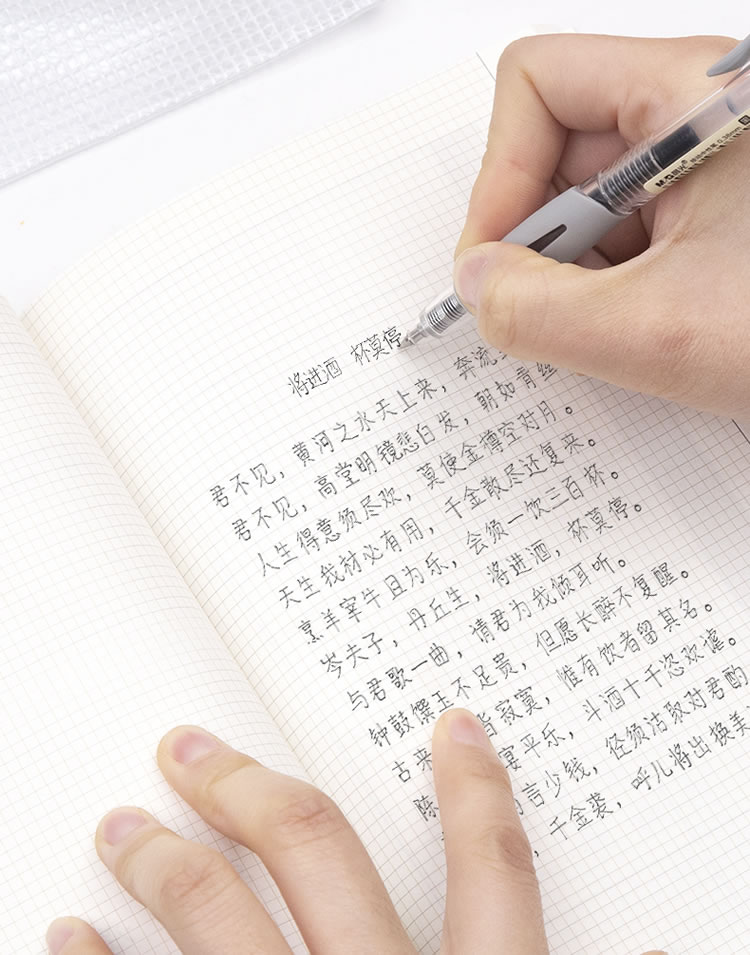 将进酒 杯莫停
君不见，黄河之水天上来，奔流
君不见，高堂明镜悲白发，朝如青丝
人生得意须尽欢，莫使金樽空对月。
天生我材必有用，千金散尽还复来。
烹羊宰牛且为乐，会须一饮三百杯。
岑夫子，丹丘生，将进酒，杯莫停。
与君歌一曲，请君为我倾耳听。
钟鼓馔玉不足贵，但愿长醉不复醒。
古来 皆寂寞，惟有饮者留其名。
陈 宴平乐，斗酒十千恣欢谑。
言少钱，径须沽取对君酌
，千金裘，呼儿将出换美
M&G晨光